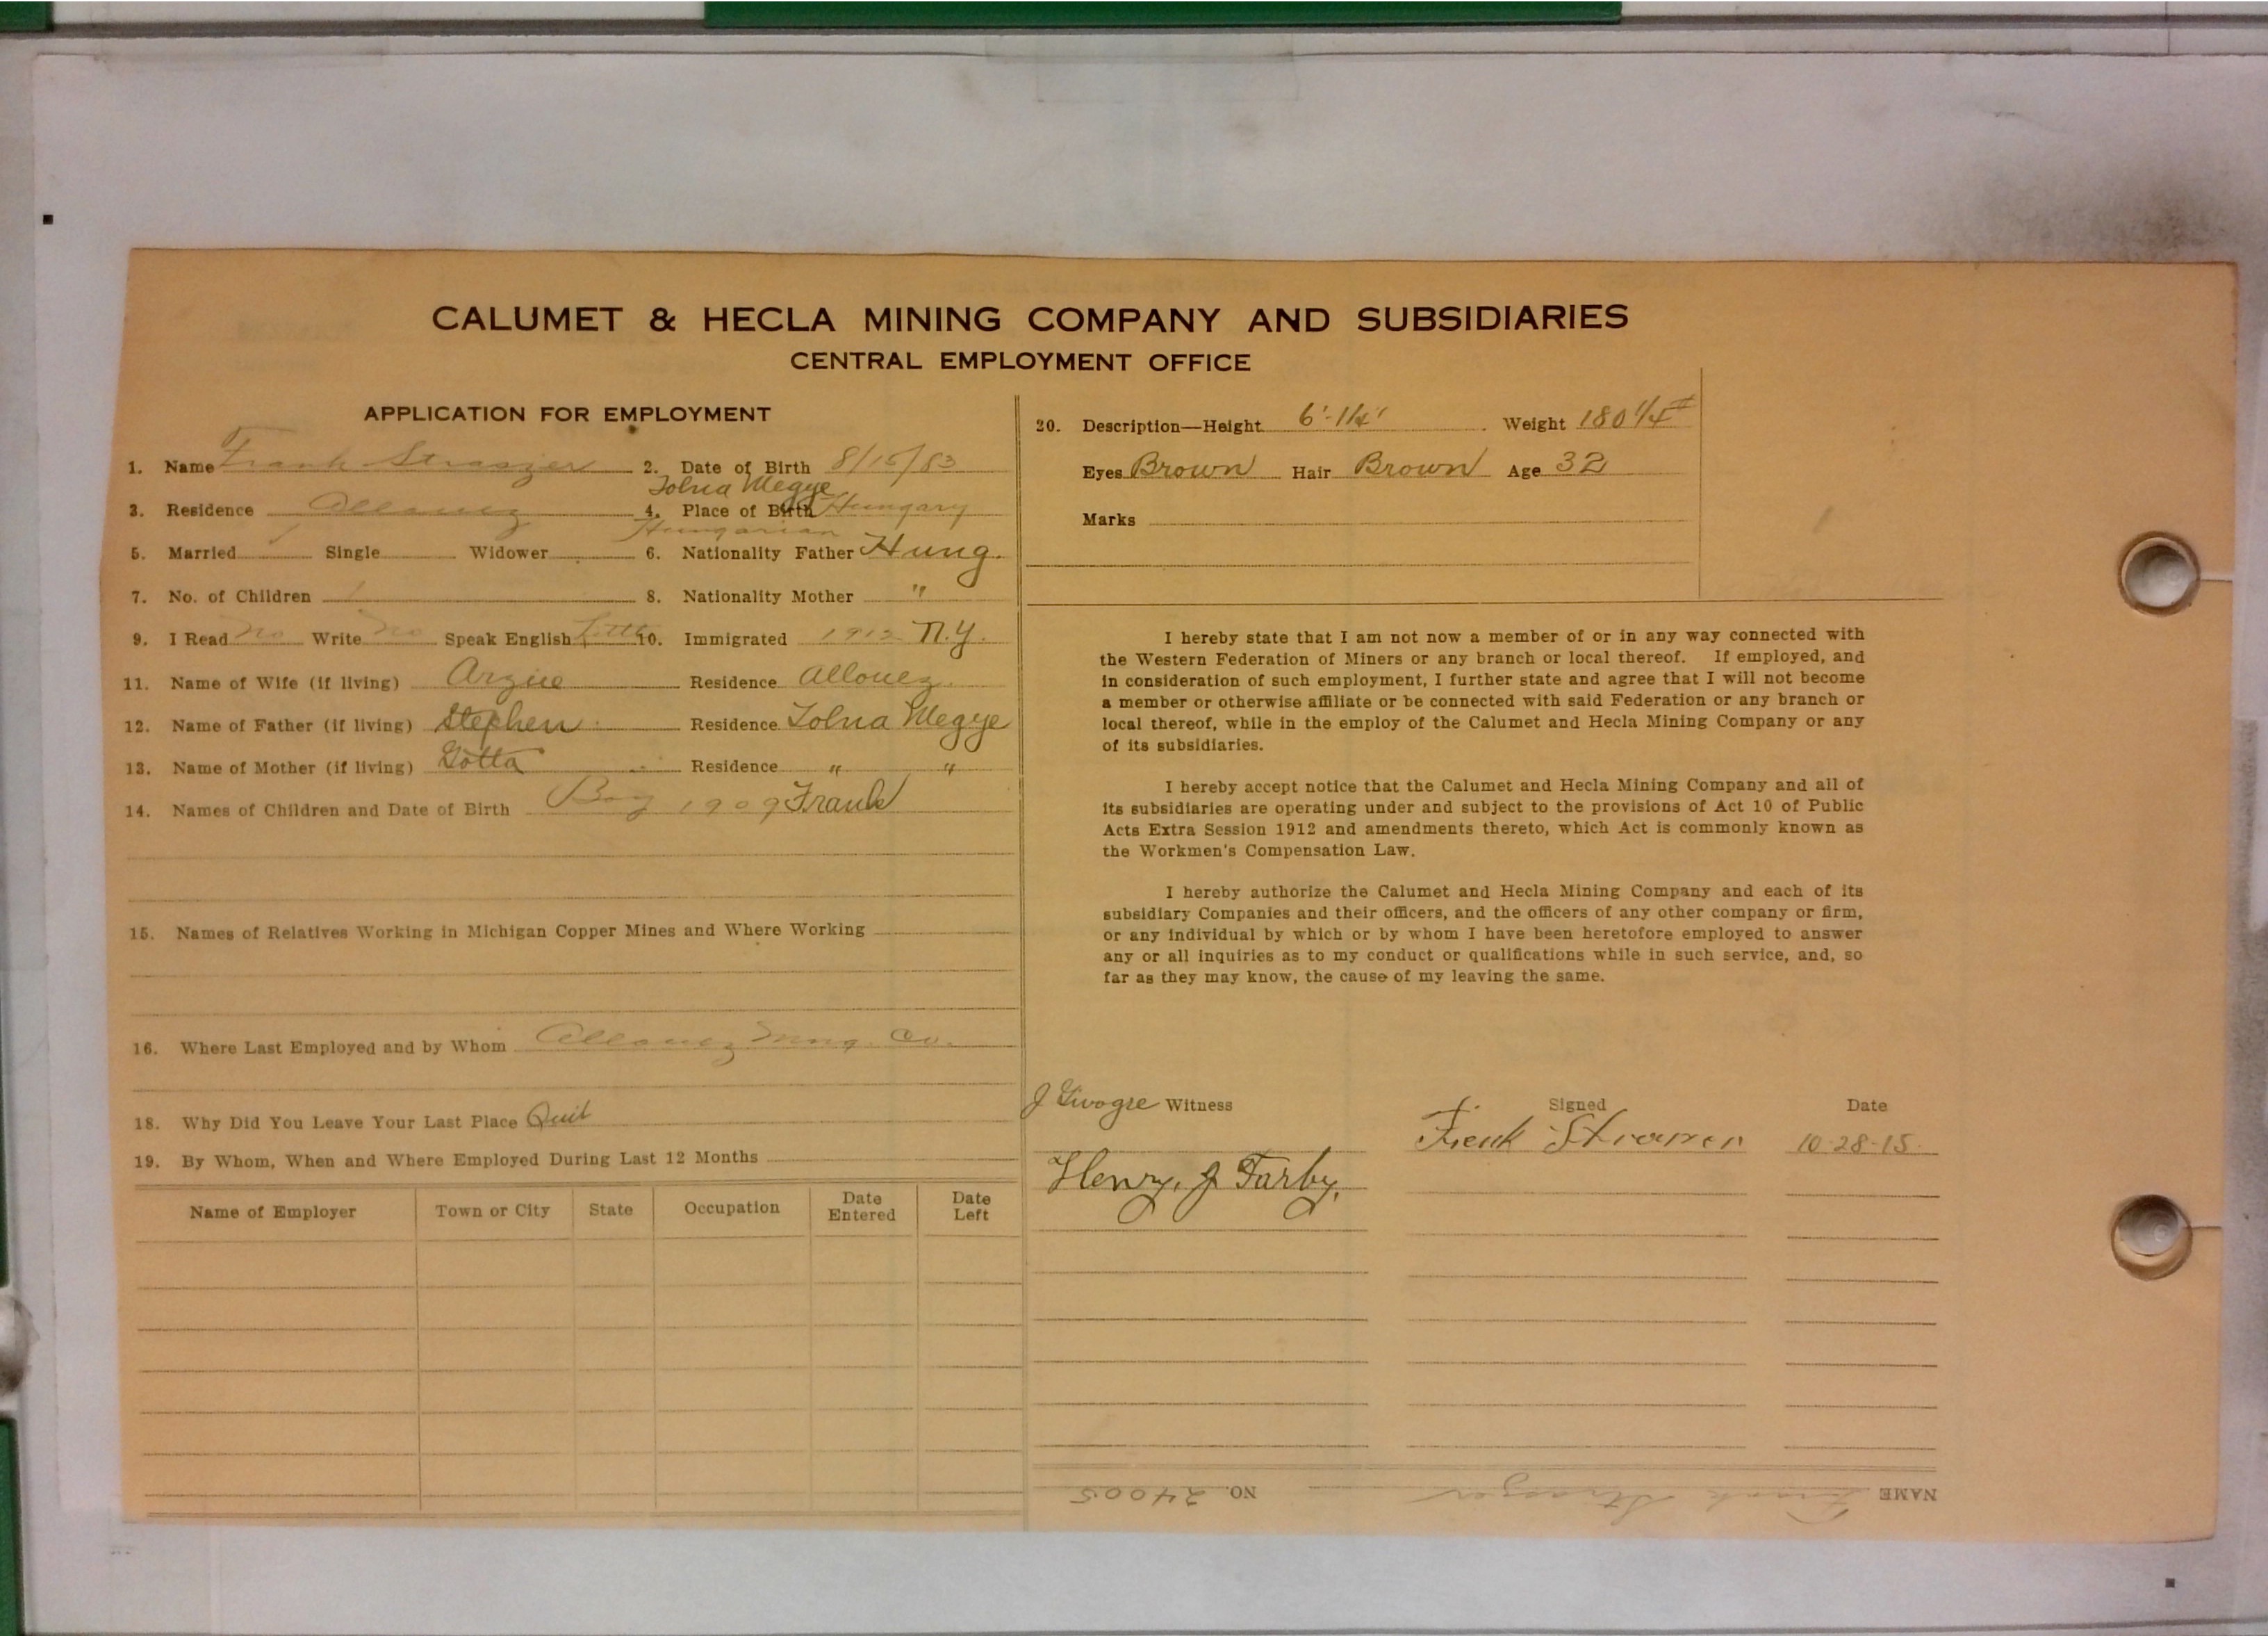 CALUMET & HECLA MINING COMPANY AND SUBSIDIARIES
CENTRAL EMPLOYMENT OFFICE
APPLICATION FOR EMPLOYMENT
1. Name Frank Straszer 2. Date of Birth 8/15/83
Tolna Megye
3. Residence Allouez 4. Place of Birth Hungary
Hungarian
5. Married / Single Widower 6. Nationality Father Hung.
7. No. of Children 1 8. Nationality Mother "
9. I Read No Write No Speak English Little 10. Immigrated 1912 N.Y.
11. Name of Wife (if living) Residence Allouez.
12. Name of Father (if living) Stephen Residence Tolna Megye
13. Name of Mother (if living) Residence " "
14. Names of Children and Date of Birth Boy 1909 Frank
15. Names of Relatives Working in Michigan Copper Mines and Where Working
16. Where Last Employed and by Whom Allouez Mng. Co.
18. Why Did You Leave Your Last Place Quit
19. By Whom, When and Where Employed During Last 12 Months
Name of Employer Town or City State Occupation Date Entered Date Left
20. Description—Height 6'-1¼" Weight 180 1/4 #
Eyes Brown Hair Brown Age 32
Marks
I hereby state that I am not now a member of or in any way connected with
the Western Federation of Miners or any branch or local thereof. If employed, and
in consideration of such employment, I further state and agree that I will not become
a member or otherwise affiliate or be connected with said Federation or any branch or
local thereof, while in the employ of the Calumet and Hecla Mining Company or any
of its subsidiaries.
I hereby accept notice that the Calumet and Hecla Mining Company and all of
its subsidiaries are operating under and subject to the provisions of Act 10 of Public
Acts Extra Session 1912 and amendments thereto, which Act is commonly known as
the Workmen's Compensation Law.
I hereby authorize the Calumet and Hecla Mining Company and each of its
subsidiary Companies and their officers, and the officers of any other company or firm,
or any individual by which or by whom I have been heretofore employed to answer
any or all inquiries as to my conduct or qualifications while in such service, and, so
far as they may know, the cause of my leaving the same.
J Witness Signed Date
10-28-15
Henry. J Farby.
NAME Frank Straszer NO. 24005